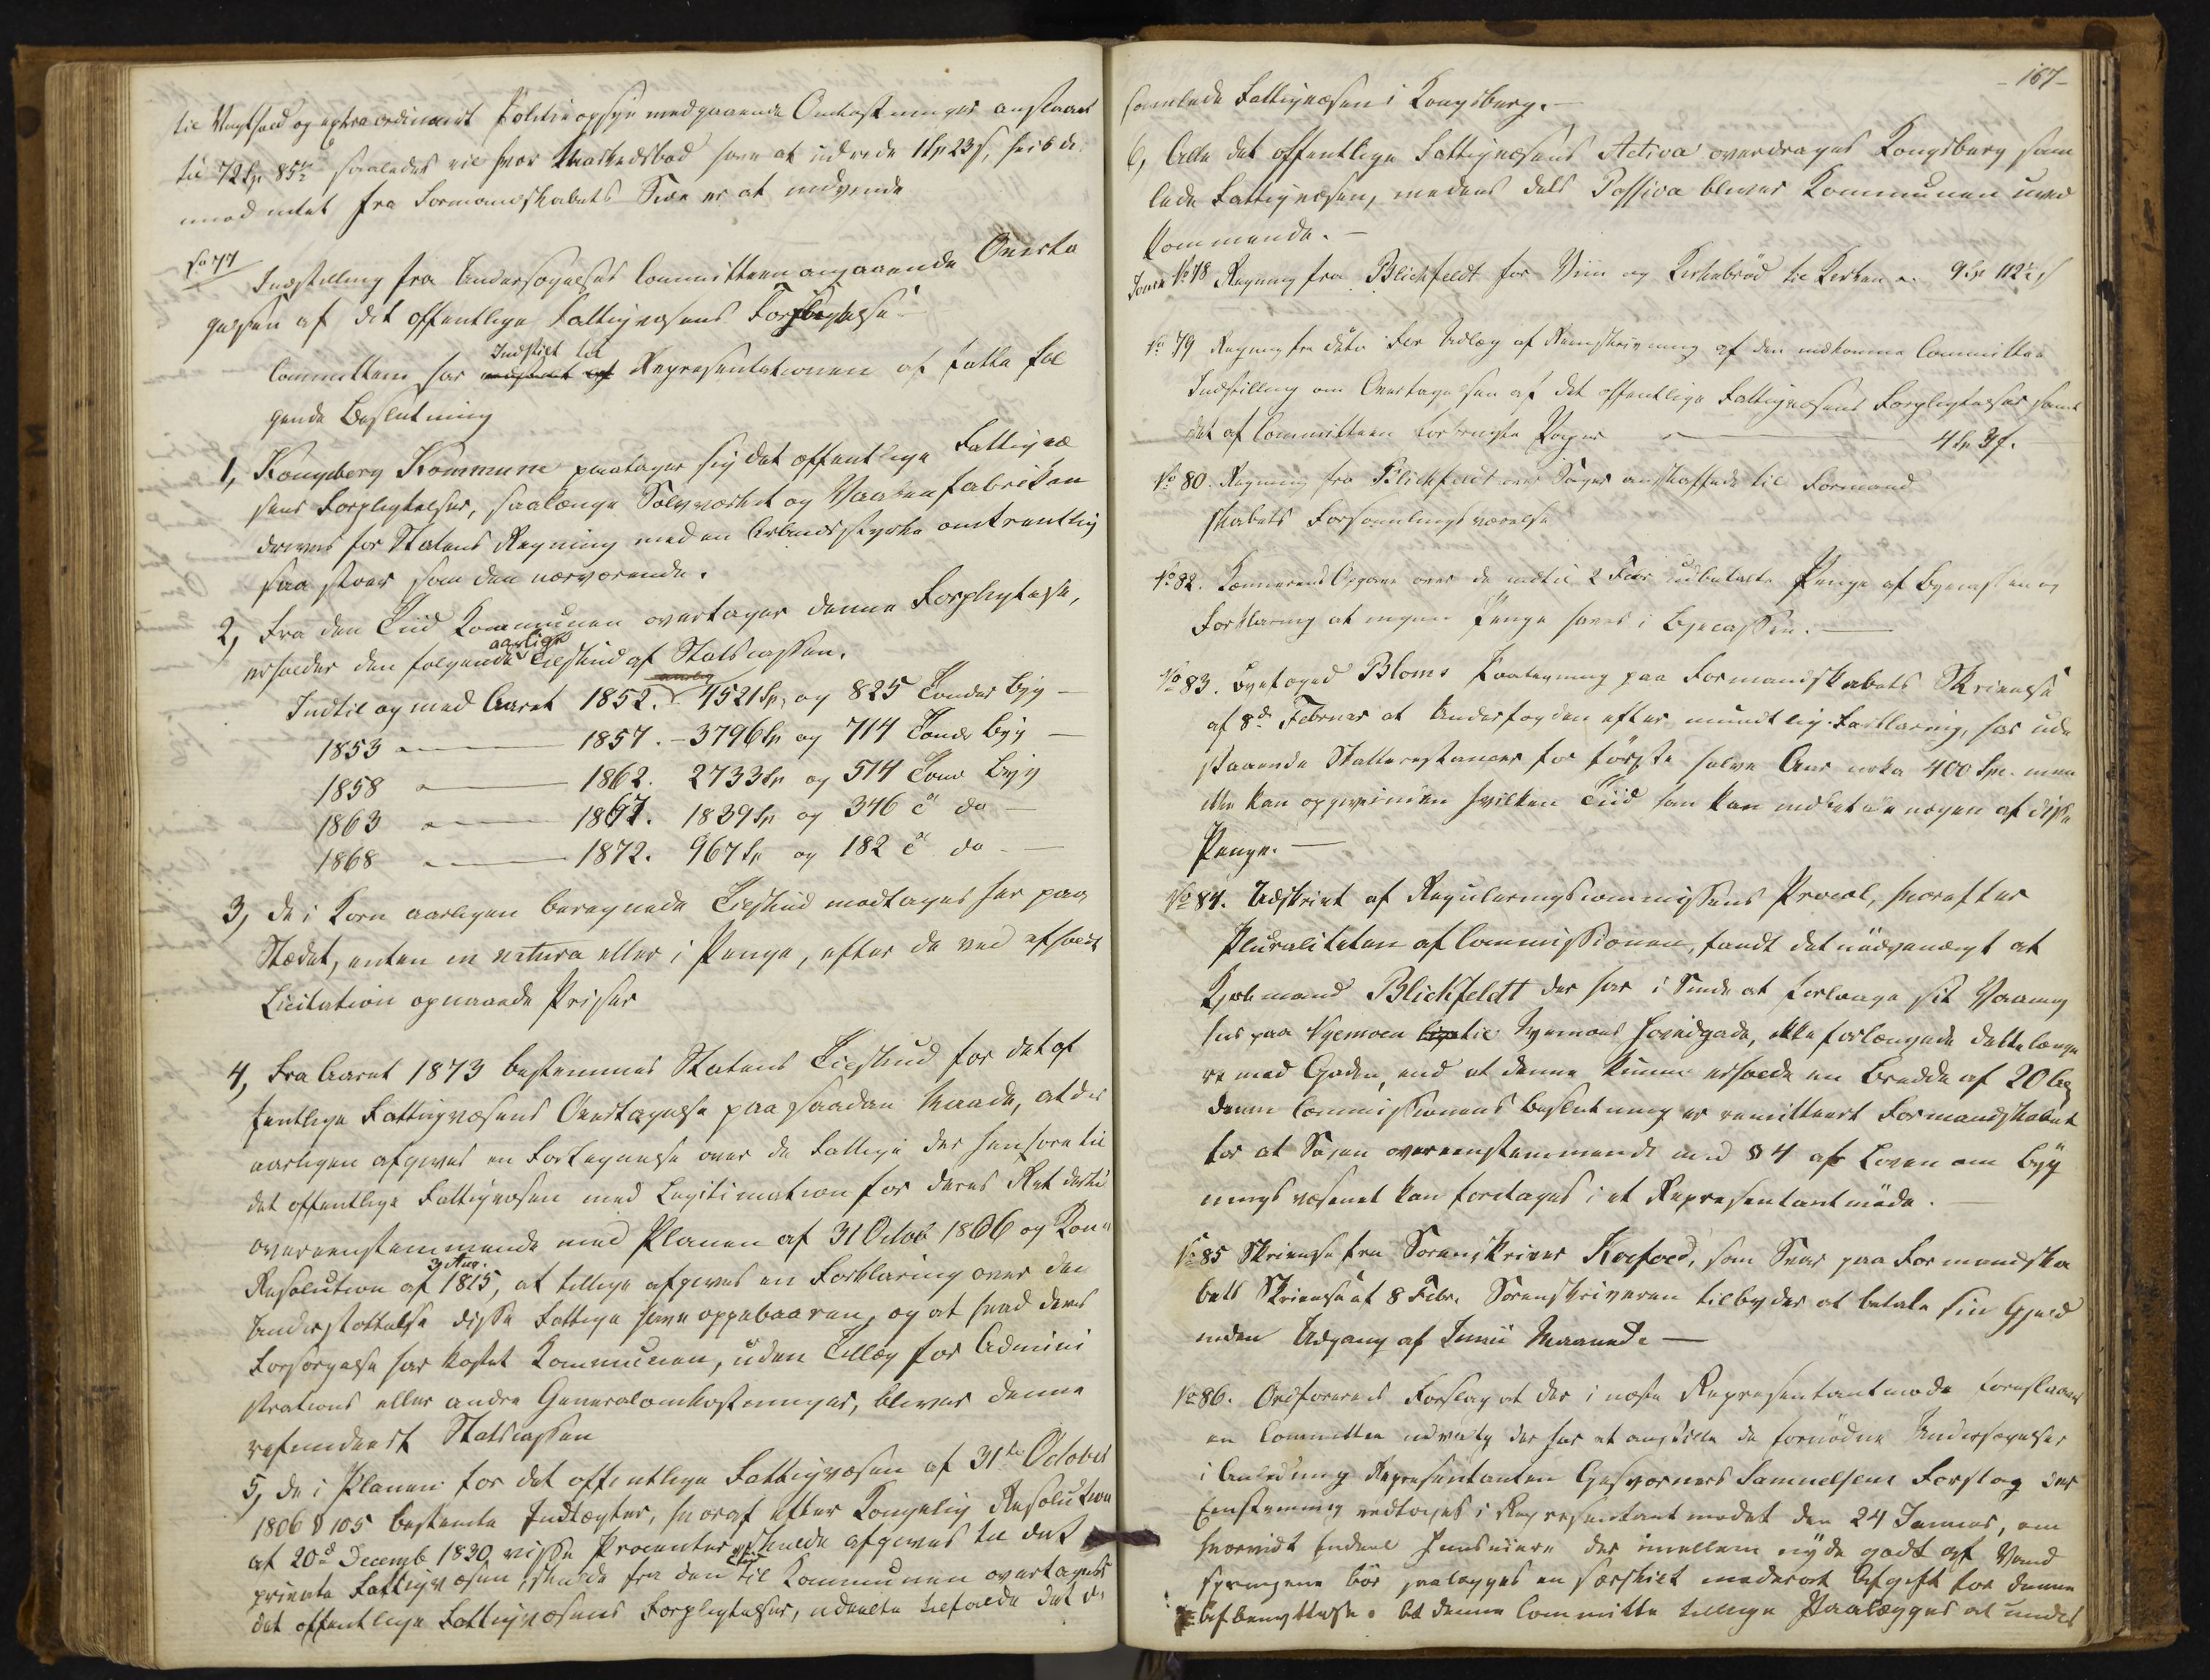 til Vagthold og extraordinairt Politieopsyn medgaaende Omkostninger anslaaet
til 72 Sp 85 1/2 saaledes vil hver Markedsbod have at udrede 1 Sp 23 s,
imod intet fra Formandskabets Side er at indvende
No 77
Indstilling fra Undersøgelses Committeen angaaende Overta
gelsen af det offentlige Fattigvæsens Forpligtelse
Indstilt til
Committeen har Repræsentationen at fatte føl
gende Beslutning
1, Kongsberg Kommune paatager sig det offentlige Fattigvæ
sens Forpligtelser, saalænge Sølvværket og Vaabenfabriken
drives for Statens Regning med en Arbeidsstyrke omtrentlig
saa stoer som den nærværende.
2, Fra den Tiid Kommunen overtager denne Forpligtelse,
aarlige
erholder den følgende Tilskud af Statscassen.
Indtil og med Aaret 1852. 4521 Sp. og 825 Tønder Byg —
1853 — 1857. — 3796 Sp og 714 Tønder Byg —
1858 — 1862. 2733 Sp og 514 Tønder Byg
1863 — 1867. 1839 Sp og 346 do —
1868 — 1872. 967 Sp og 182 do —
3, De i Korn aarligen beregnede Tilskud modtages her paa
Stedet, enten in natura eller i Penge, efter de ved afholdt
Licitation opnaaede Priser
4, Fra Aaret 1873 bestemmes Statens Tilskud for det of
fentlige Fattigvæsens Overtagelse paa saadan Maade, at der
aarligen afgives en Fortegnelse over de Fattige der henhøre til
det offentlige Fattigvæsen med Legitimation for deres Ret dertil
overeensstemmende med Planen af 31 Octob 1806 og Kon
3 Aug.
Resolution af 1815, at tillige afgives en Forklaring over den
Understøttelse disse Fattige have oppebaaren, og at hvad deres
Forsørgelse har kostet Kommunen, uden Tillæg for Admini
strations eller andre Generalomkostninger, bliver denne
refunderet Statscassen
5, De i Planen for det offentlige Fattigvæsen af 31te October
1806 § 105 bestemte Indtægter, hvoraf efter Kongelig Resolution
af 20de Decemb 1830, visse Procenter skulde afgives til det
private Fattigvæsen, skulde fra den Tiid Kommunen overtager
det offentlige Fattigvæsens Forpligtelser, udeelte tilfalde det
- 167 -
samlede Fattigvæsen i Kongsberg. —
6, Alle det offentlige Fattigvæsens Activa overdrages Kongsberg sam
lede Fattigvæsen, medens dets Passiva bliver Kommunen uved
kommende. —
No 78 Regning fra Blichfeldt for Viin og Kirkebrød til Kirken 9 Sp 112 1/2 s
No 79 Regning fra dito for Udlæg af Reenskrivning af den indkomne Committee
Indstilling om Overtagelsen af det offentlige Fattigvæsens Forpligtelser samt
det af Committeen forbrugte Papir — 4 Sp
No 80. Regning fra Blichfeldt over Sager anskaffede til Formand
skabets Forsamlingsværelse
No 82. Kæmnerens Opgave over de indtil 2 Febr udbetalte Penge af Byecassen og
Forklaring at ingen Penge haves i Byecassen. —
No 83. Byefoged Bloms Paategning paa Formandskabets Skrivelse
af 8de Februar at Underfogden efter mundtlig Forklaring, har ude
staaende Skatterestancer for første halve Aar cirka 400 Spd. men
ikke kan opgive inden hvilken Tiid han kan indbetale nogen af disse
Penge. —
No 84. Udskrivt af Reguleringscommissions Protocol, hvorefter
Pluraliteten af Commissionen, fandt det nødvendigt at
Kjøbmand Blichfeldt der har i Sinde at forlænge sit Vaaning
huus paa Nyemoen til Nyemoens Hovedgade, ikke forlængede dette længe
re mod Gaden, end at denne kunne erholde en Bredde af 20 Al
denne Commissionens Beslutning er remitteret Formandskabet
for at Sagen overeensstemmende med § 4 af Loven om Byg
ningsvæsenet kan foretages i et Repræsentantmøde. —
No 85 Skrivelse fra Sorenskriver Kofoed, som Svar paa Formandska
bets Skrivelse af 8 Febr. Sorenskriveren tilbyder at betale sin Gjeld
inden Udgang af Junii Maaned. —
No 86. Ordførerens Forslag at der i næste Repræsentantmøde foreslaaes
en Committee udvalg der har at anstille de fornødne Undersøgelser
i Anledning Repræsentanten Gjesværners Samuelsens Forslag der
Eenstemmig vedtoges i Repræsentantmødet den 24 Januar, om
hvorvidt endeel Huuseiere der imellem nyde godt af Vand
springene bør paalægges en særskilt moderat Afgift for denne
Afbenyttelse. At denne Committe tillige Paalægges at under